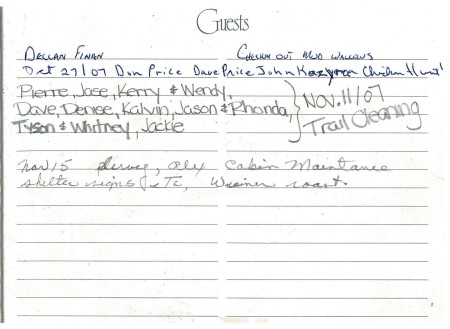 Guests
DECLAN FINAN CHECKIN OUT
Oct 27/07 Don Price Dave Price John
Pierre, Jose, Kerry & Wendy,
Dave, Denise, Kalvin, Jason & Rhonda,
Tyson & Whitney, Jackie
NOV. 11/07
Trail Cleaning
Nov 15 Alex Cabin Maintance
shelter signs etc, Weiner roast.